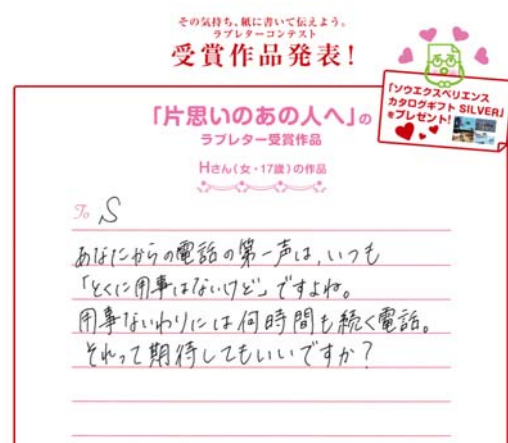 その気持ち、紙に書いて伝えよう。
ラブレターコンテスト
受賞作品発表!
「ソウエクスペリエンス
カタログギフト SILVER」
をプレゼント!
「片思いのあの人へ」の
ラブレター受賞作品
Hさん(女・17歳)の作品
To S
あなたからの電話の第一声は、いつも
「とくに用事はないけど」ですよね。
用事ないわりには何時間も続く電話。
それって期待してもいいですか?